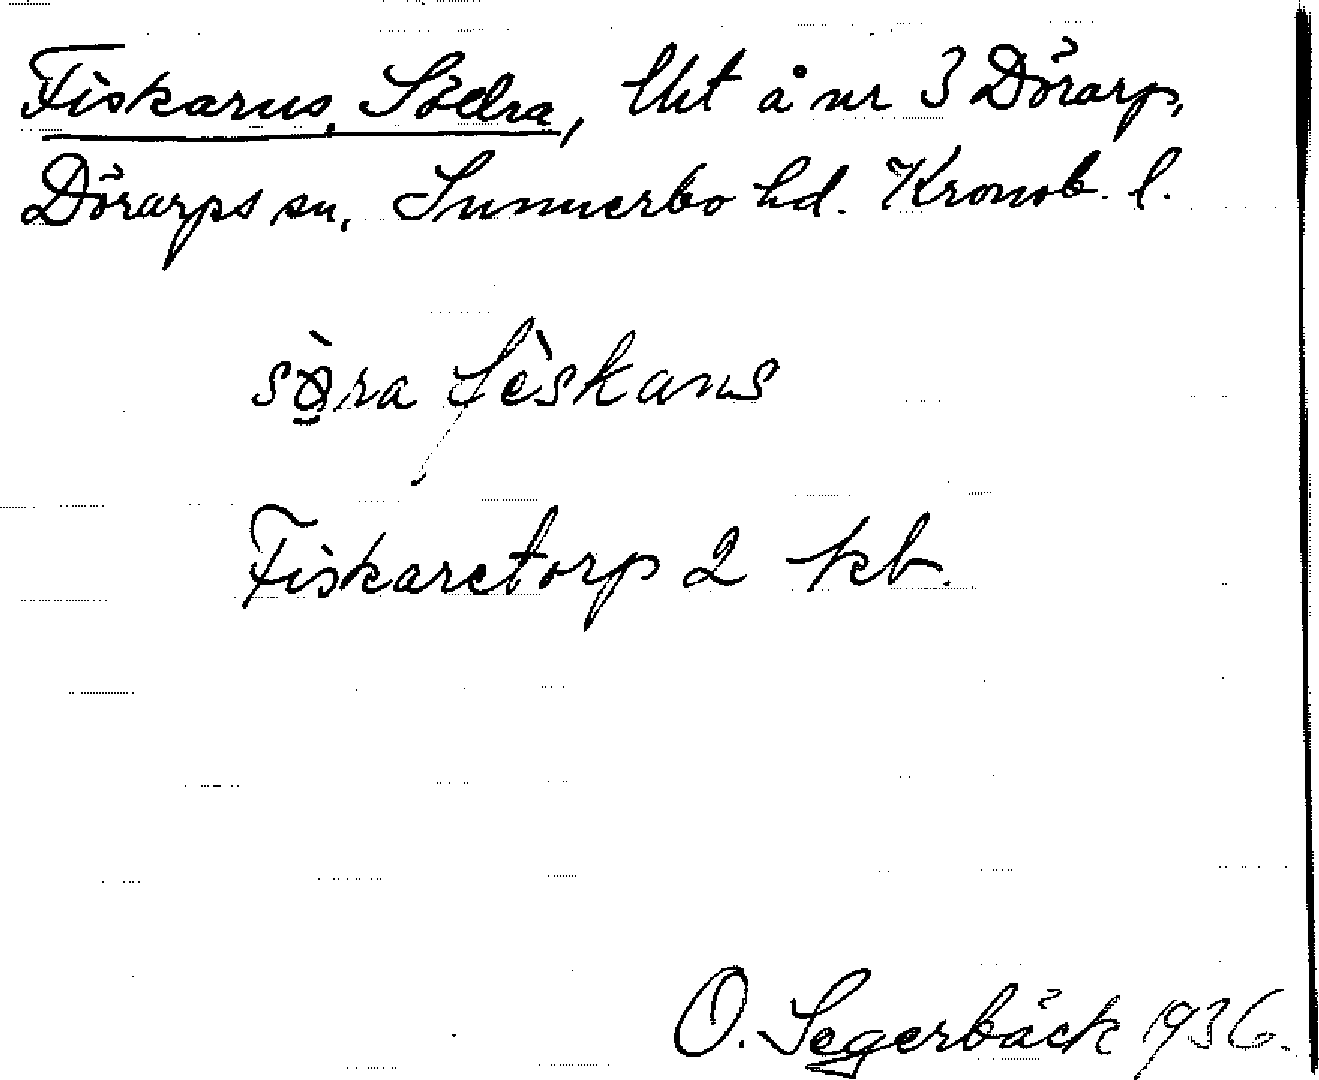 Fiskarns, Södra, lht å nr 3 Dörarp,
Dörarps sn, Sunnerbo hd. Kronob. l.
sö̀ra fèskans
Fiskaretorp 2 kb.
O. Segerbäck 1936.